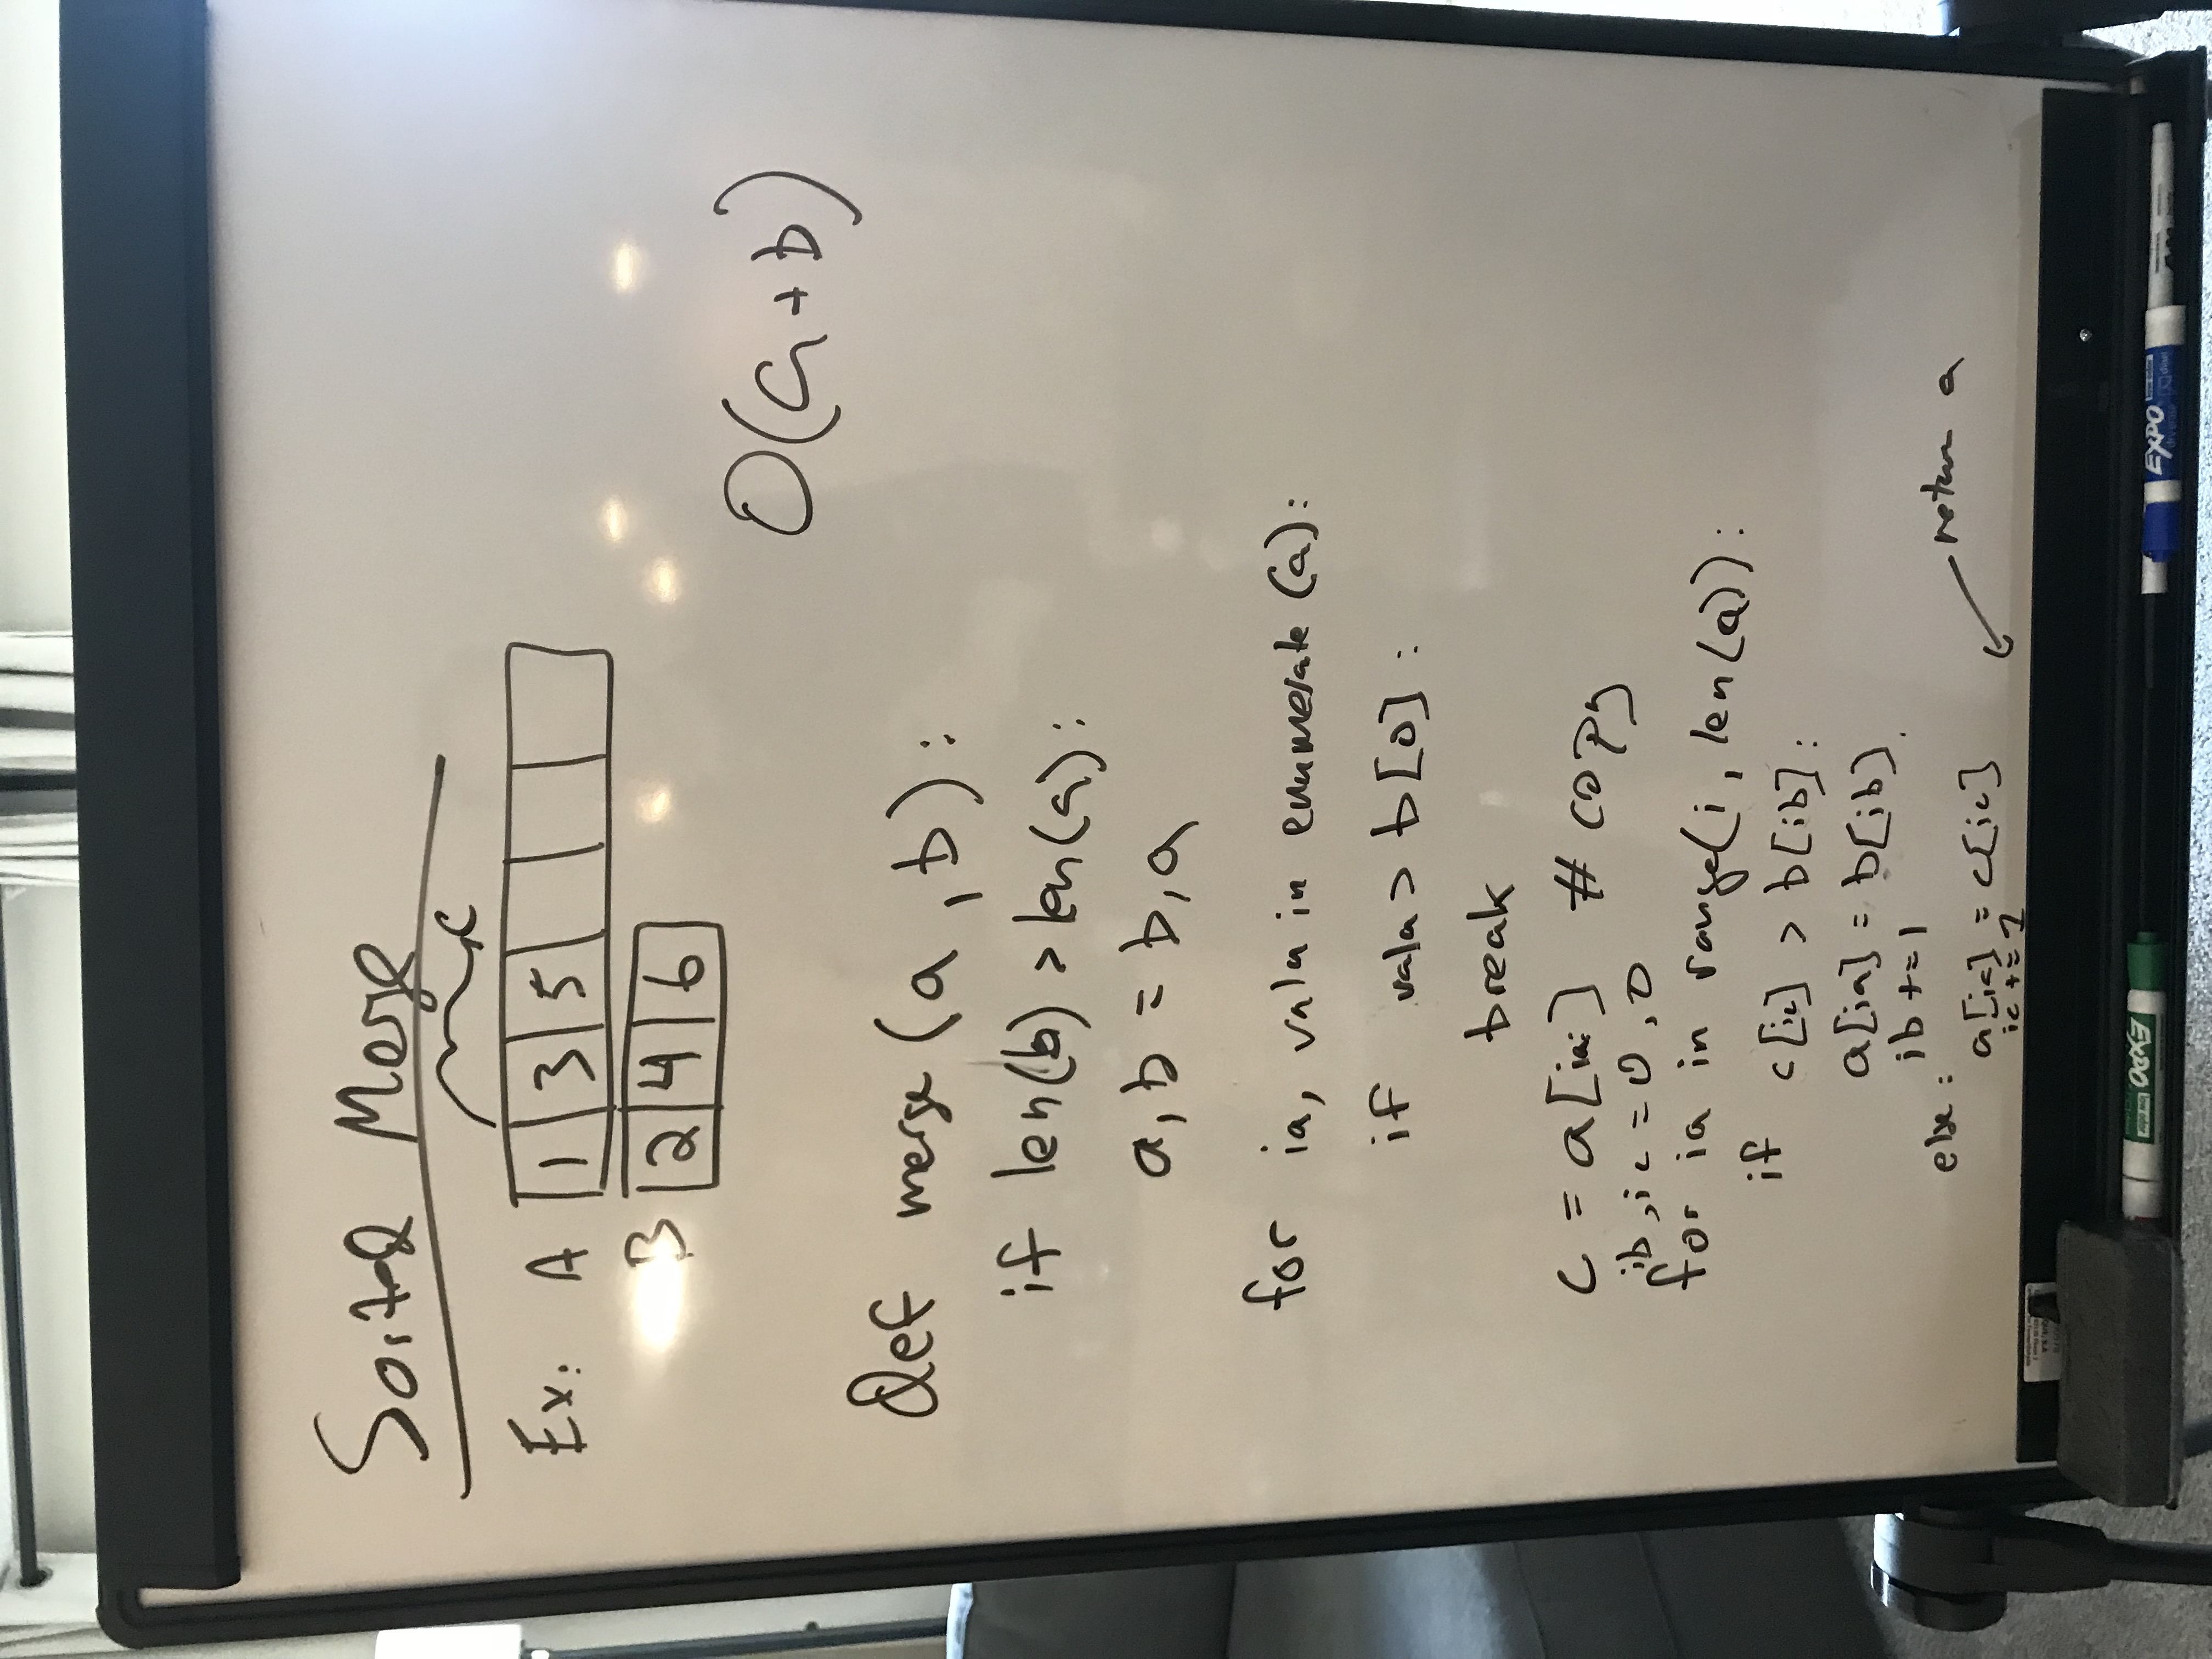 Sorted Merge
c
Ex: A 1 3 5
B 2 4 6
O(a+b)
def merge(a, b):
if len(b) > len(a):
a, b = b, a
for ia, vala in enumerate(a):
if vala > b[0]:
break
c = a[ia:] # copy
ib, ic = 0, 0
for ia in range(i, len(a)):
if c[ic] > b[ib]:
a[ia] = b[ib]
ib += 1
else:
a[ic] = c[ic]
ic += 1
return a
EXPO
low odor
EXPO
dry erase